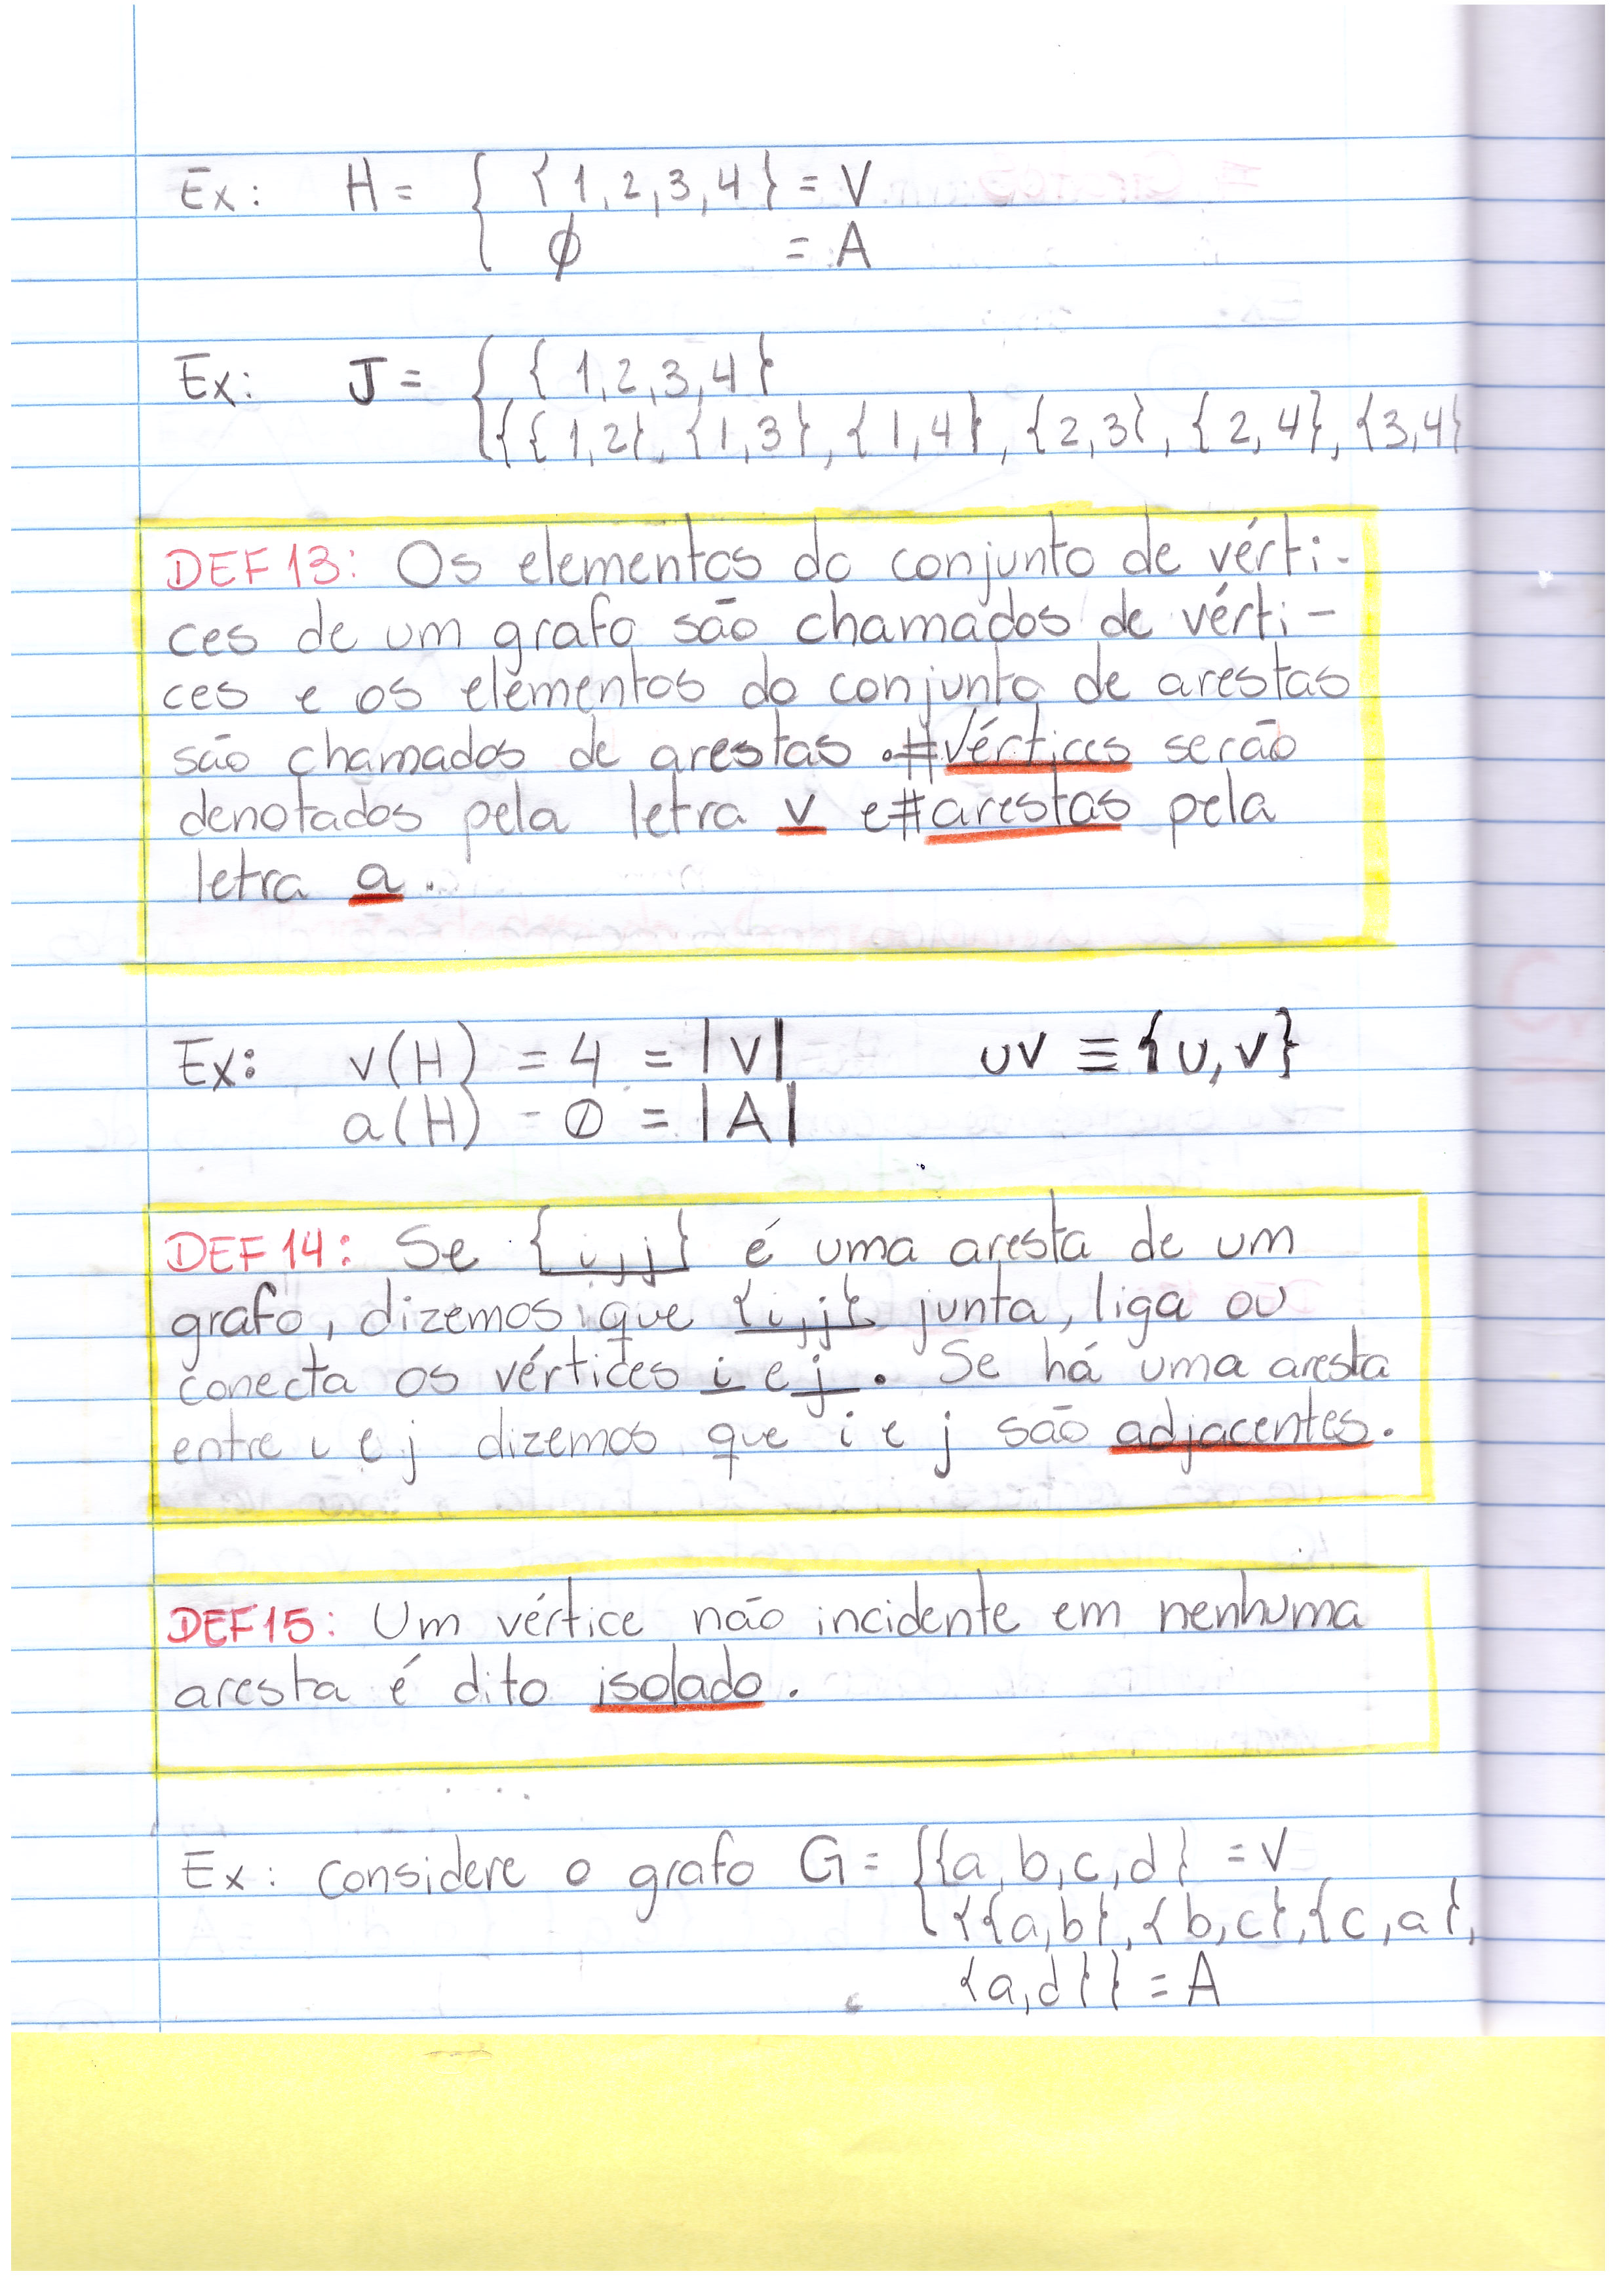 Ex: H = { {1,2,3,4} = V
∅ = A
Ex: J = { {1,2,3,4}
{{1,2}, {1,3}, {1,4}, {2,3}, {2,4}, {3,4}
DEF13: Os elementos do conjunto de vérti-
ces de um grafo são chamados de vérti-
ces e os elementos do conjunto de arestas
são chamados de arestas. #Vértices serão
denotados pela letra v e #arestas pela
letra a.
Ex: v(H) = 4 = |V| uv ≡ {u,v}
a(H) = 0 = |A|
DEF14: Se {i,j} é uma aresta de um
grafo, dizemos que {i,j} junta, liga ou
conecta os vértices i e j. Se há uma aresta
entre i e j dizemos que i e j são adjacentes.
DEF15: Um vértice não incidente em nenhuma
aresta é dito isolado.
Ex: considere o grafo G = { {a,b,c,d} = V
{{a,b}, {b,c}, {c,a},
{a,d}} = A